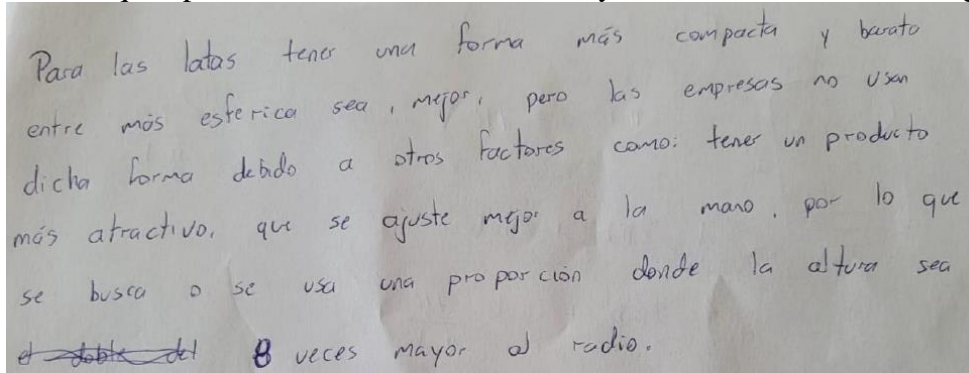 Para las latas tener una forma más compacta y barato
entre más esferica sea, mejor, pero las empresas no usan
dicha forma debido a otros factores como: tener un producto
más atractivo, que se ajuste mejor a la mano, por lo que
se busca o se usa una proporción donde la altura sea
el doble del 8 veces mayor al radio.